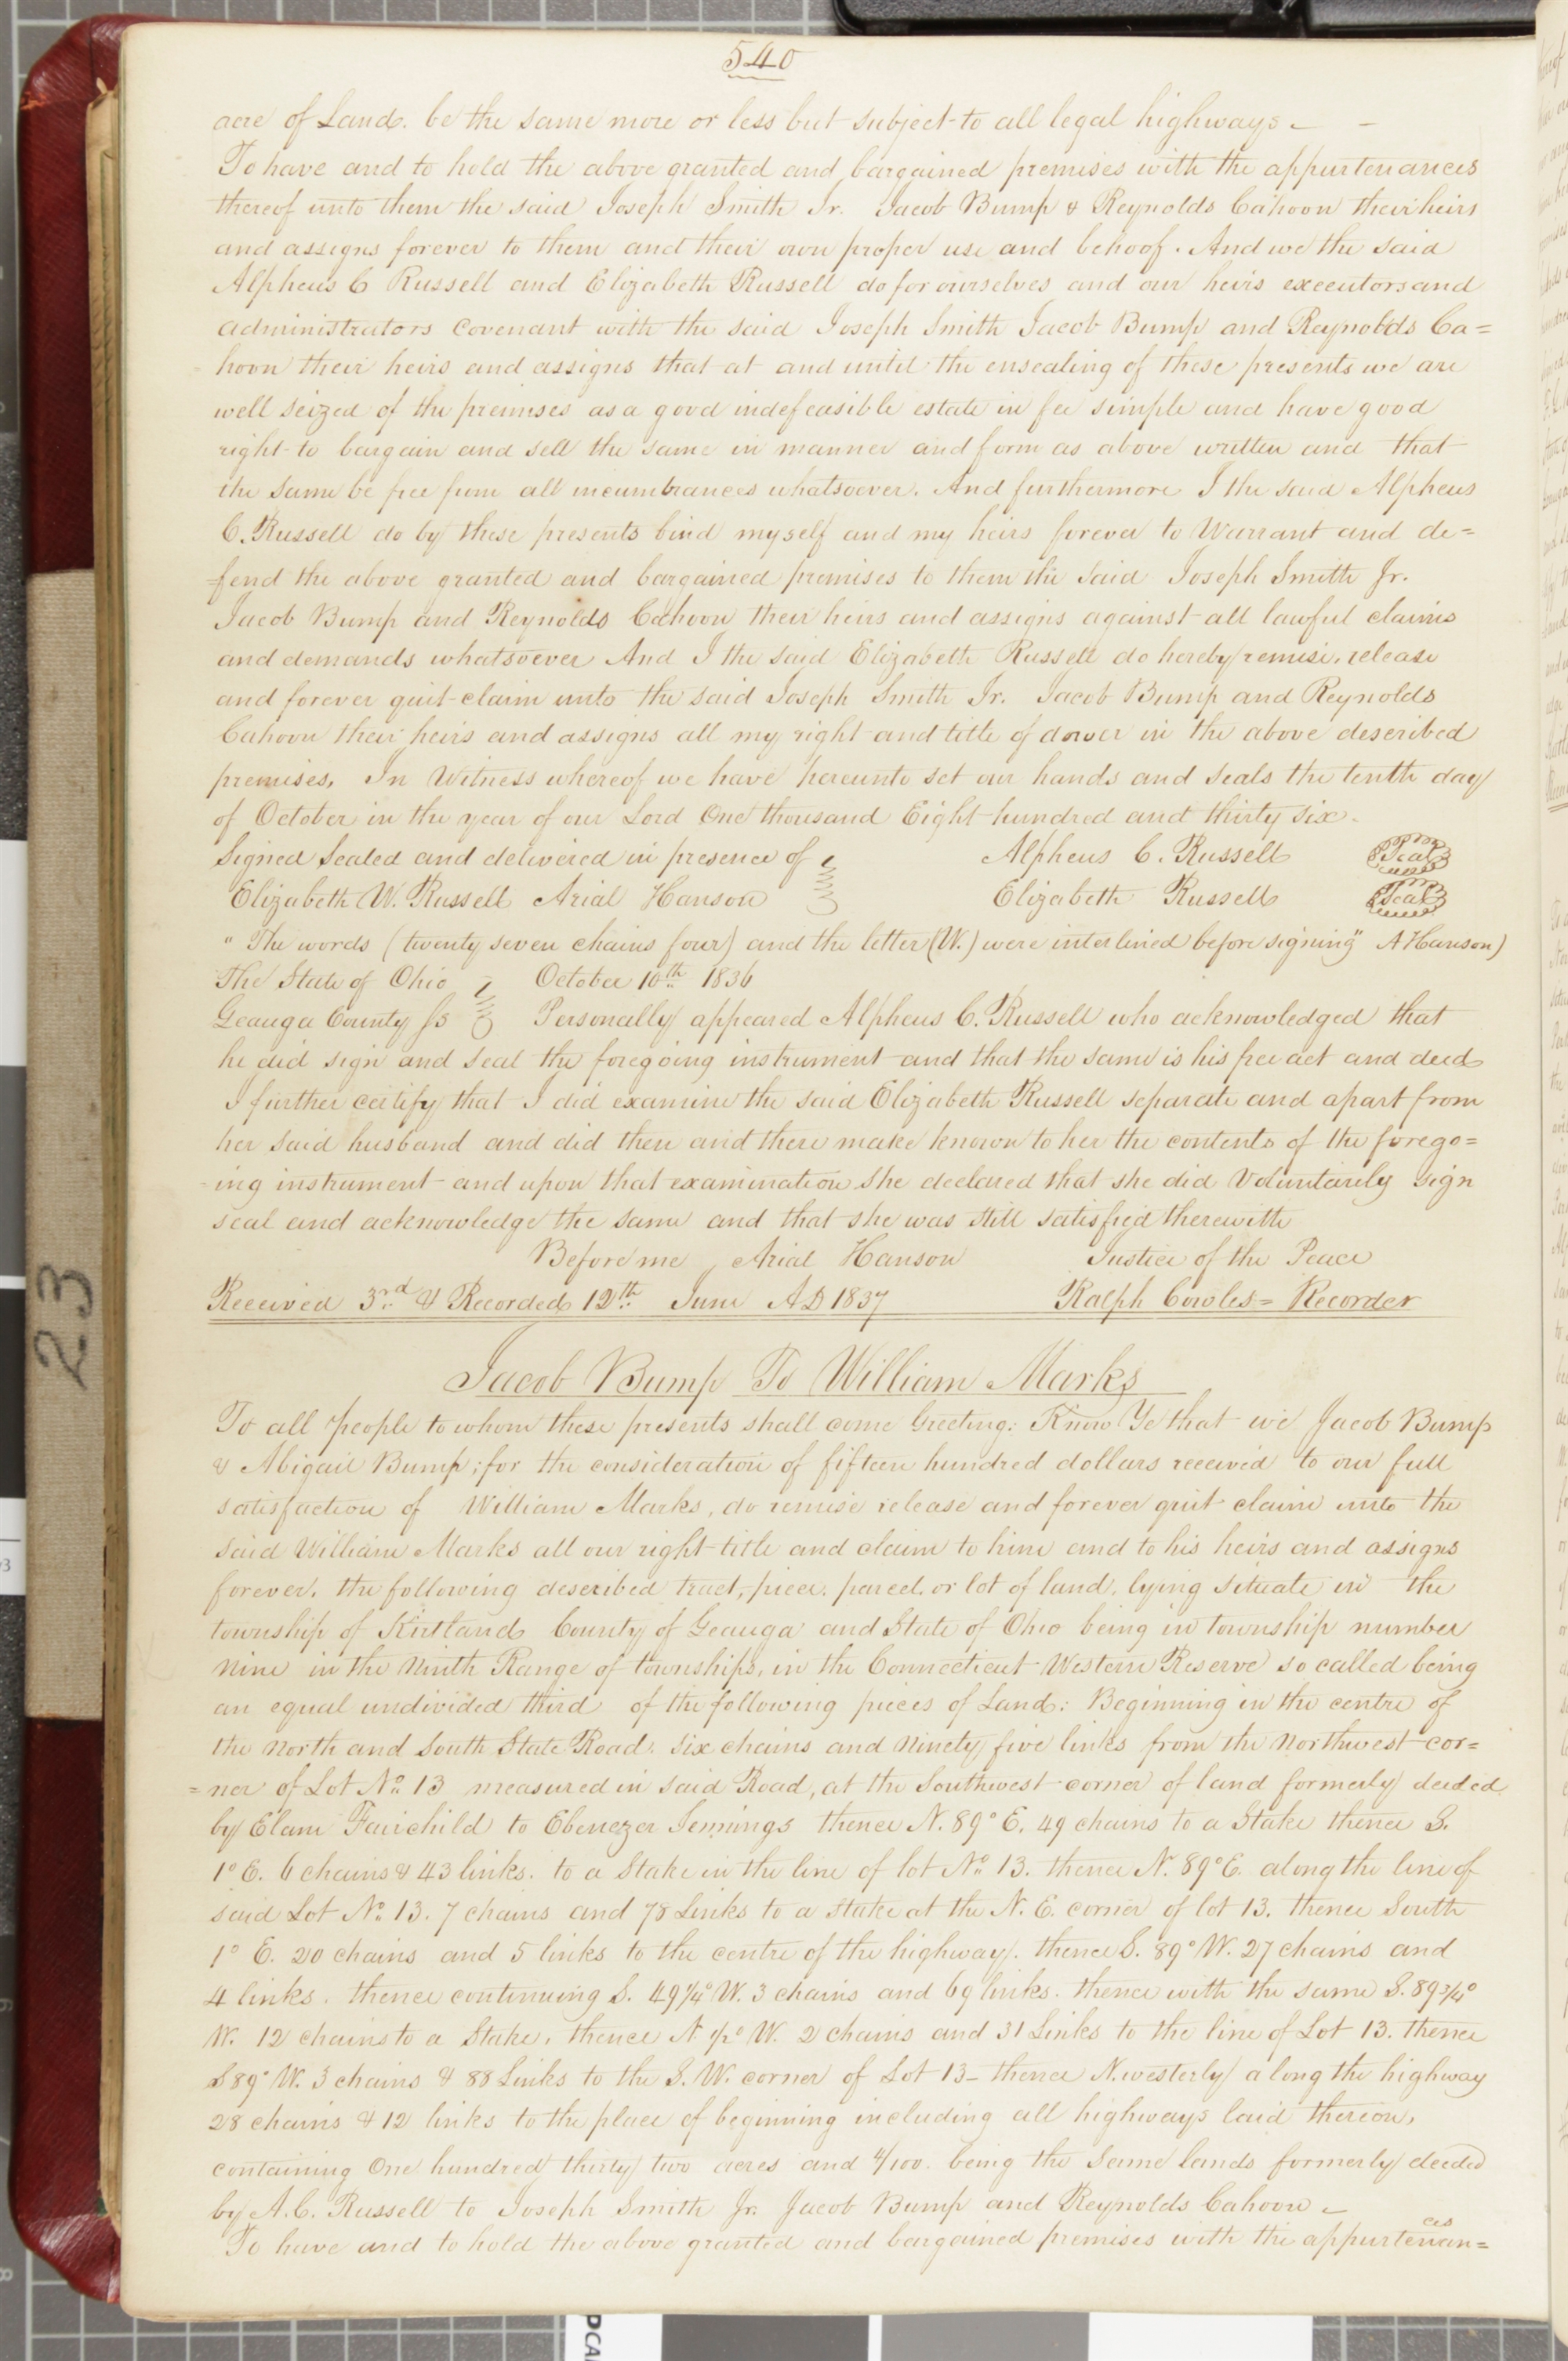 540
acre of Land. be the same more or less but subject to all legal highways –
To have and to hold the above granted and bargained premises with the appurtenances
thereof unto them the said Joseph Smith Jr. Jacob Bump & Reynolds Cahoon their heirs
and assigns forever to them and their own proper use and behoof. And we the said
Alpheus C Russell and Elizabeth Russell do for ourselves and our heirs executors and
administrators covenant with the said Joseph Smith Jacob Bump and Reynolds Ca=
hoon their heirs and assigns that at and until the ensealing of these presents we are
well seized of the premises as a good indefeasible estate in fee simple and have good
right to bargain and sell the same in manner and form as above written and that
the same be free from all incumbrances whatsoever. And furthermore I the said Alpheus
C. Russell do by these presents bind myself and my heirs forever to Warrant and de=
fend the above granted and bargained premises to them the said Joseph Smith Jr.
Jacob Bump and Reynolds Cahoon their heirs and assigns against all lawful claims
and demands whatsoever And I the said Elizabeth Russell do hereby remise, release
and forever quit claim unto the said Joseph Smith Jr. Jacob Bump and Reynolds
Cahoon their heirs and assigns all my right and title of dower in the above described
premises. In Witness whereof we have hereunto set our hands and seals the tenth day
of October in the year of our Lord One thousand Eight hundred and thirty six.
Signed Sealed and delivered in presence of Alpheus C. Russell Seal
Elizabeth W. Russell Arial Hanson Elizabeth Russell Seal
"The words (twenty seven chains four) and the letter (W.) were interlined before signing" A Hanson)
The State of Ohio October 10th 1836
Geauga County ss Personally appeared Alpheus C. Russell who acknowledged that
he did sign and seal the foregoing instrument and that the same is his free act and deed
I further certify that I did examine the said Elizabeth Russell separate and apart from
her said husband and did then and there make known to her the contents of the forego=
ing instrument and upon that examination she declared that she did voluntarily sign
seal and acknowledge the same and that she was still satisfied therewith
Before me, Arial Hanson Justice of the Peace
Received 3rd & Recorded 12th June AD 1837 Ralph Cowles= Recorder
Jacob Bump To William Marks
To all people to whom these presents shall come Greeting: Know Ye that we Jacob Bump
& Abigail Bump; for the consideration of fifteen hundred dollars received to our full
satisfaction of William Marks, do remise release and forever quit claim unto the
said William Marks all our right title and claim to him and to his heirs and assigns
forever, the following described tract, piece, parcel, or lot of land, lying situate in the
township of Kirtland County of Geauga and State of Ohio being in township number
nine in the ninth Range of townships, in the Connecticut Western Reserve so called being
an equal undivided third of the following pieces of Land: Beginning in the centre of
the North and South State Road, six chains and ninety five links from the northwest cor=
=ner of Lot No. 13 measured in said Road, at the Southwest corner of land formerly deeded
by Elam Fairchild to Ebenezer Jennings thence N. 89° E. 49 chains to a Stake thence S.
1° E. 6 chains & 43 links. to a Stake in the line of lot No. 13. thence N. 89° E. along the line of
said Lot No. 13. 7 chains and 78 Links to a stake at the N. E. corner of lot 13. thence South
1° E. 20 chains and 5 links to the centre of the highway. thence S. 89° W. 27 chains and
4 links. thence continuing S. 49 1/4° W. 3 chains and 69 links. thence with the same S. 89 3/4°
W. 12 chains to a Stake, thence N 1/2° W. 2 chains and 31 Links to the line of Lot 13. thence
S 89° W. 3 chains & 88 Links to the S. W. corner of Lot 13 – thence N. westerly along the highway
28 chains & 12 links to the place of beginning including all highways laid thereon,
containing One hundred thirty two acres and 4/100 being the same lands formerly deeded
by A. C. Russell to Joseph Smith Jr. Jacob Bump and Reynolds Cahoon –
To have and to hold the above granted and bargained premises with the appurtenan=
ces
23